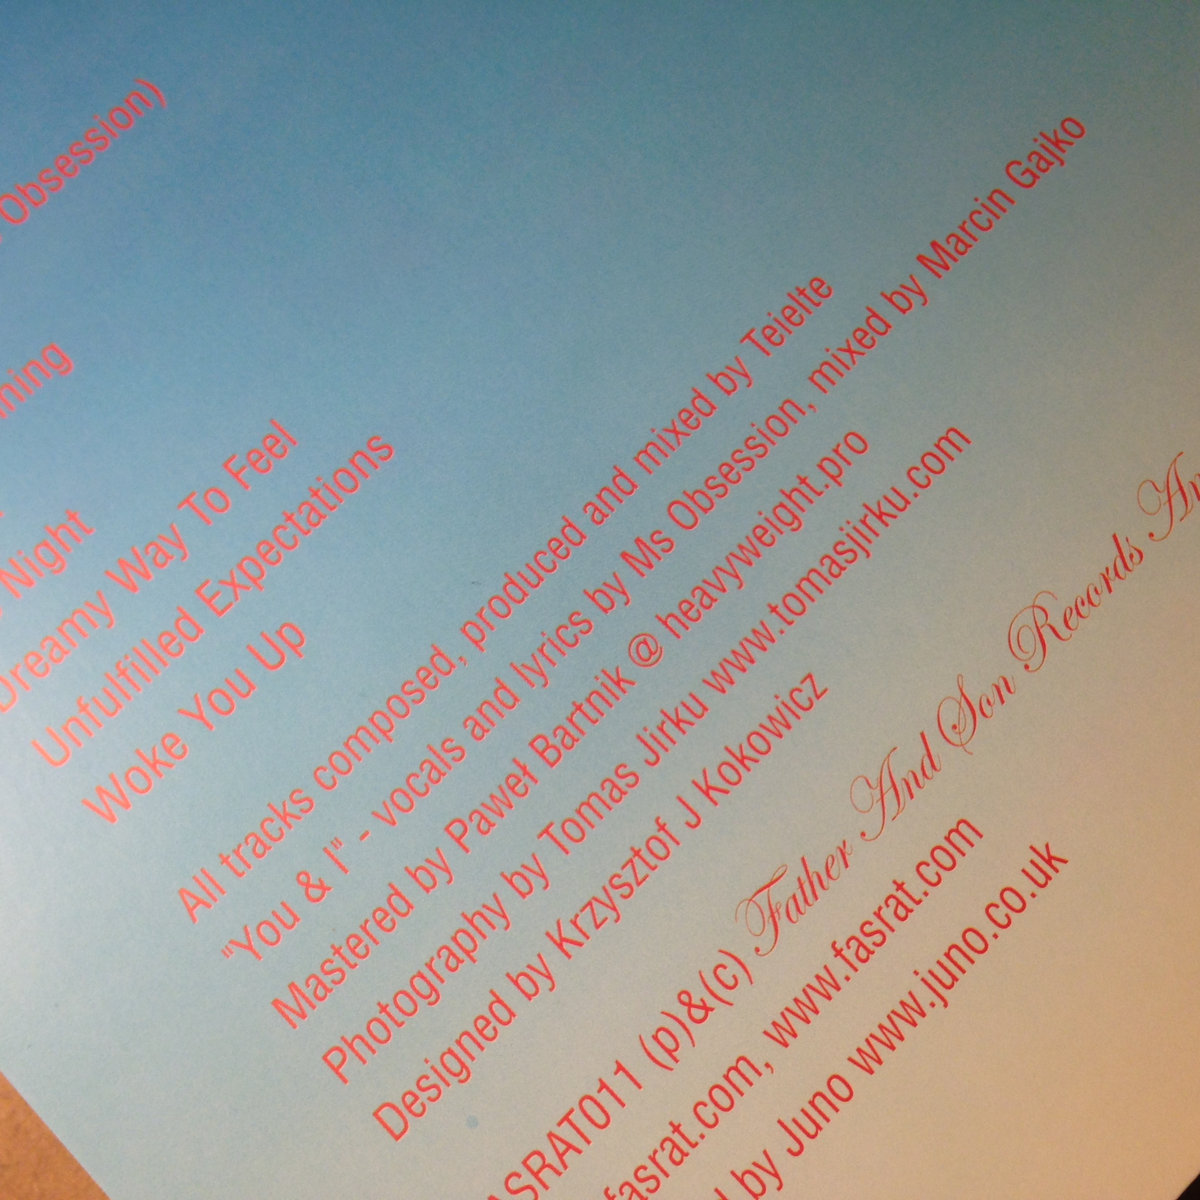 Obsession)
Night
Dreamy Way To Feel
Unfulfilled Expectations
Woke You Up
All tracks composed, produced and mixed by Teielte
"You & I" - vocals and lyrics by Ms Obsession, mixed by Marcin Gajko
Mastered by Paweł Bartnik @ heavyweight.pro
Photography by Tomas Jirku www.tomasjirku.com
Designed by Krzysztof J Kokowicz
ASRAT011 (p)&(c) Father And Son Records An
fasrat.com, www.fasrat.com
by Juno www.juno.co.uk